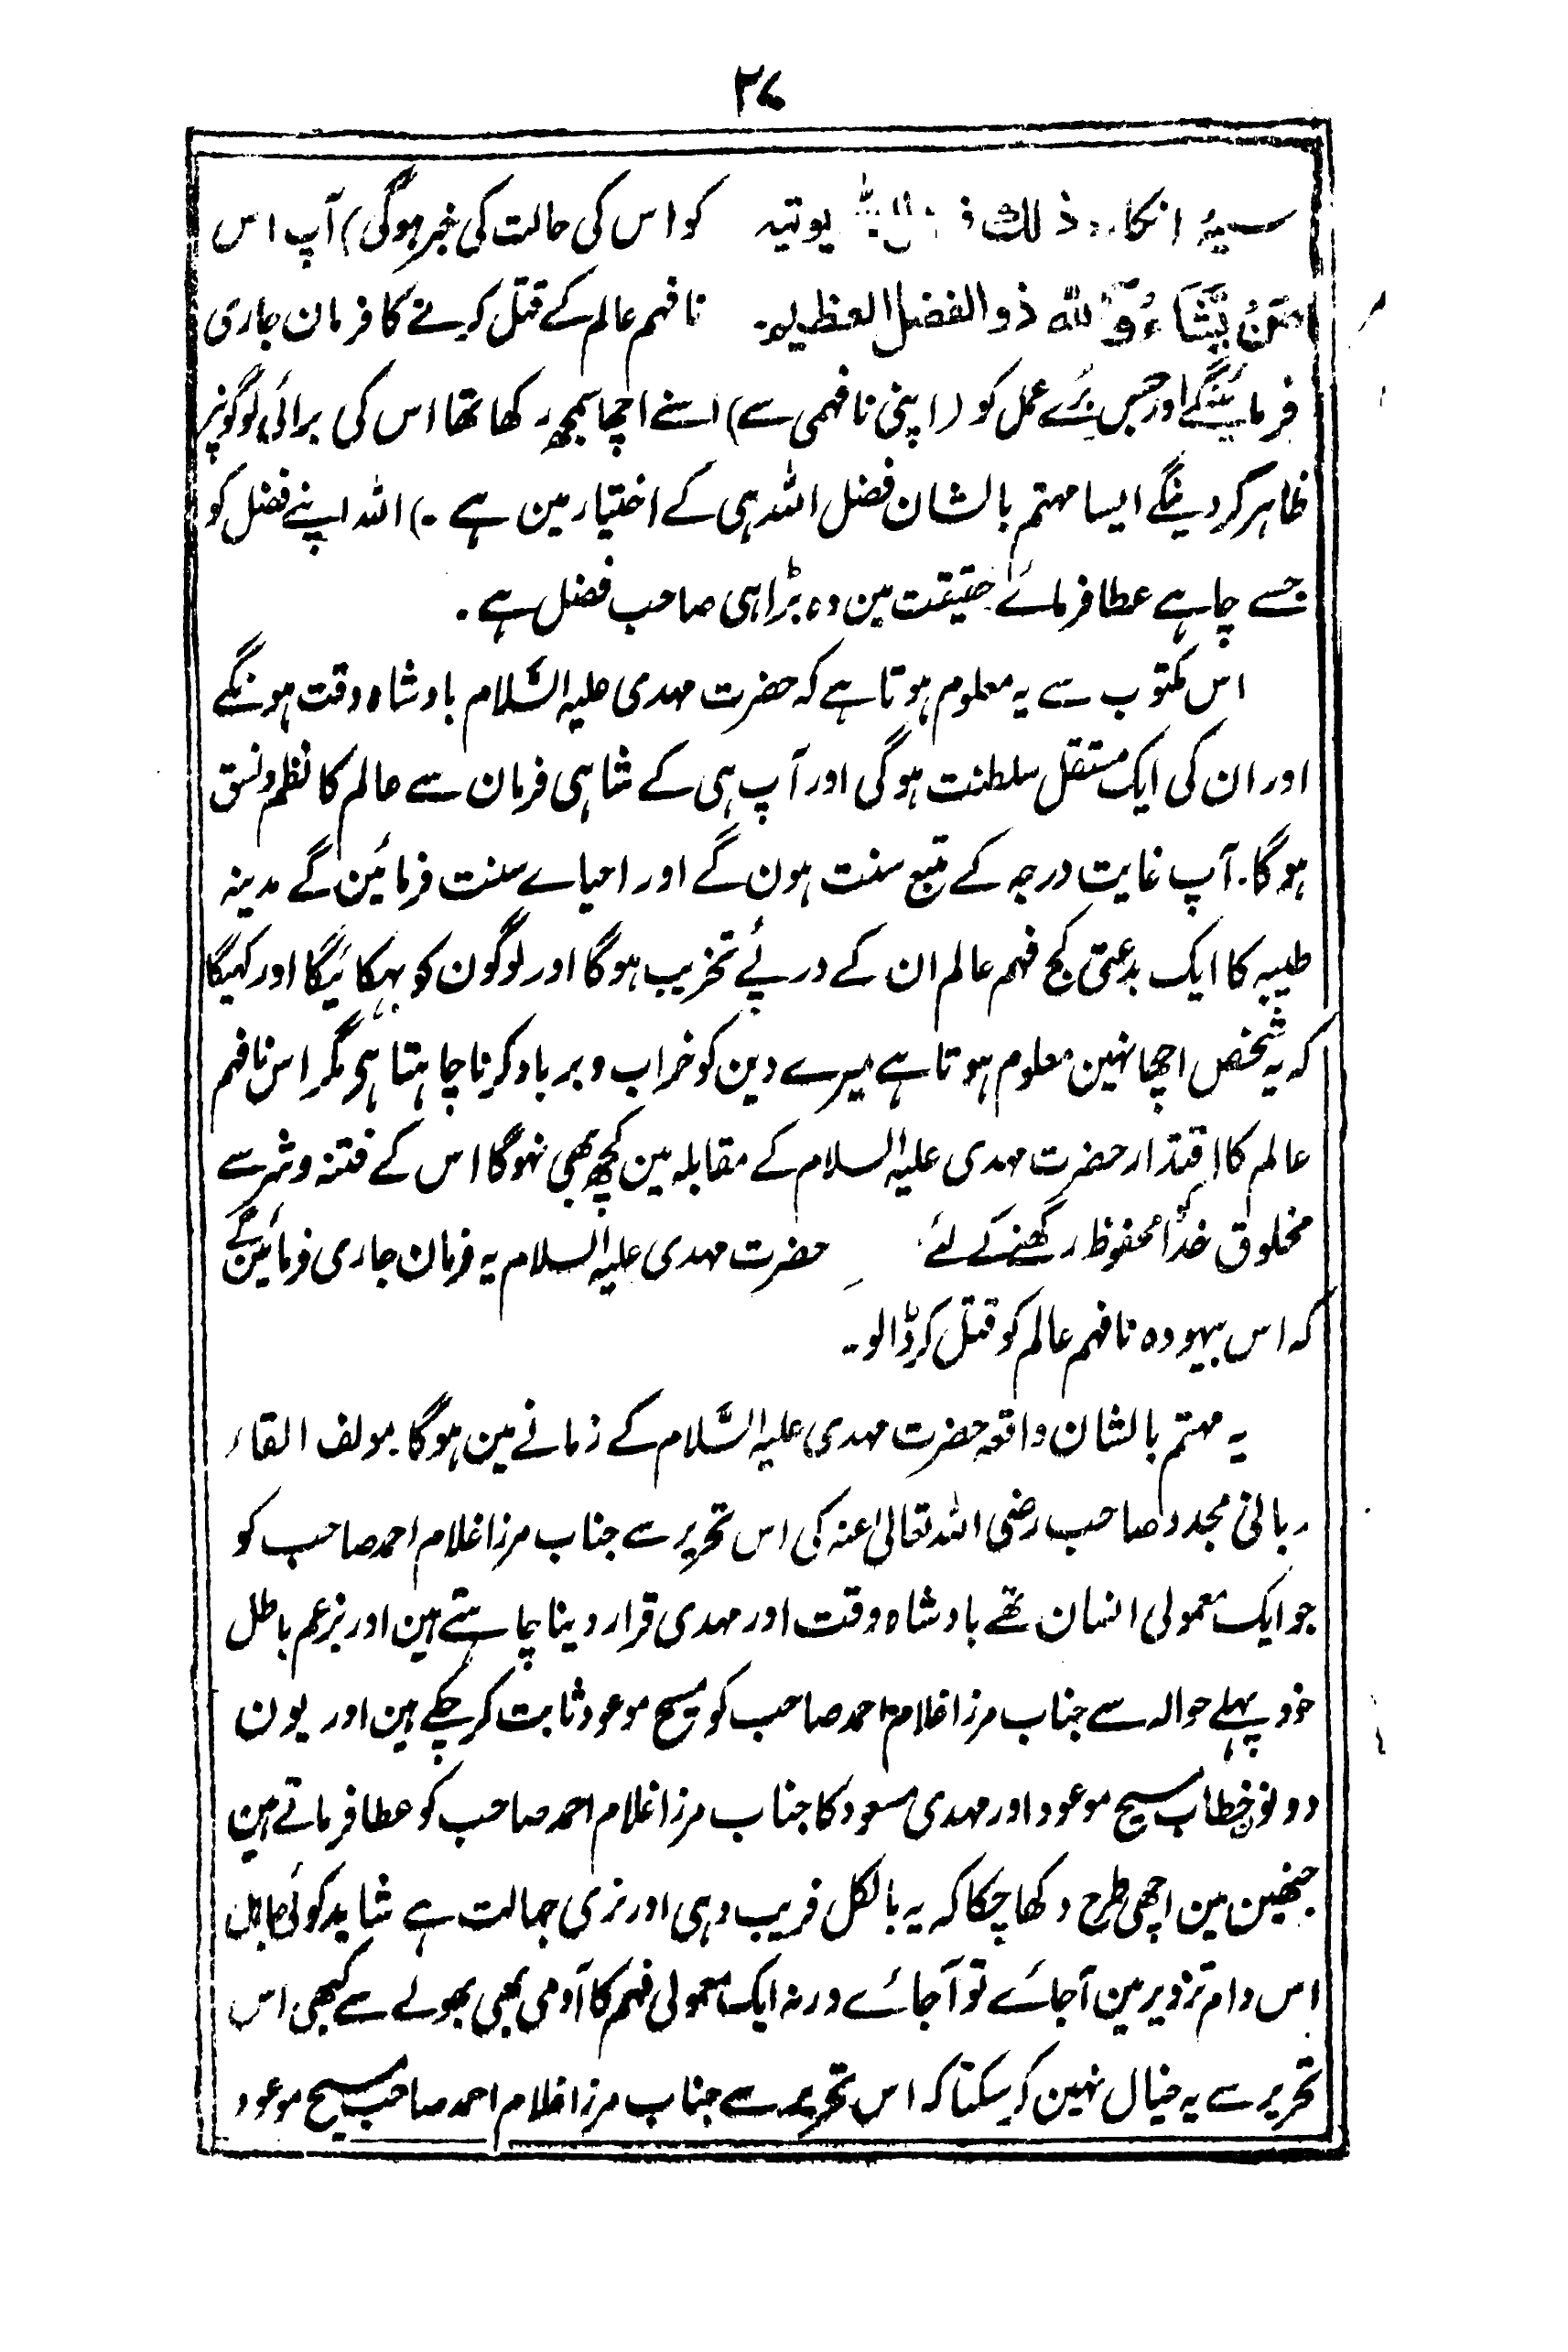 ۲۷
سیۂ انکارد ذلك یوتیہ کو اس کی حالت کی خبر ہوگی) آپ اس
مَنُ یَّشَاءُ وَاللّٰہ ذوالفضل العظیم۔ نافہم عالم کے قتل کرنے کا فرمان جاری
فرمائینگے اور جس بُرے عمل کو (اپنی نافہمی سے) اسنے اچھا سمجھ رکھا تھا اس کی برائی لوگونپر
ظاہر کر دینگے ایسا مہتم بالشان فضل اللہ ہی کے اختیار مین ہے ۔) اللہ اپنے فضل کو
جسے چاہے عطا فرمائے حقیقت مین وہ بڑا ہی صاحب فضل ہے ۔
اس مکتوب سے یہ معلوم ہوتا ہے کہ حضرت مہدی علیہ السَّلام بادشاہ وقت ہونگے
اور ان کی ایک مستقل سلطنت ہوگی اور آپ ہی کے شاہی فرمان سے عالم کا نظم ونسق
ہوگا۔ آپ غایت درجہ کے متبع سنت ہون گے اور احیاے سنت فرمائین گے مدینہ
طیبہ کا ایک بدعتی کج فہم عالم ان کے درپئے تخریب ہوگا اور لوگون کو بہکائیگا اور کہیگا
کہ یہ شخص اچھا نہین معلوم ہوتا ہے میرے دین کو خراب و برباد کرنا چاہتا ہی مگر اس نافہم
عالم کا اقتدار حضرت مہدی علیہ السلام کے مقابلہ مین کچھ بھی نہوگا اس کے فتنہ وشر سے
مخلوق خدا کو محفوظ رکھنے کے لئے حضرت مہدی علیہ السلام یہ فرمان جاری فرمائین گے
کہ اس بیہودہ نافہم عالم کو قتل کر ڈالو۔
یہ مہتم بالشان واقعہ حضرت مہدی علیہ السَّلام کے زمانے مین ہوگا۔ مولف القاء
ربانی مجدد صاحب رضی اللہ تعالیٰ عنہ کی اس تحریر سے جناب مرزا غلام احمد صاحب کو
جو ایک معمولی انسان تھے بادشاہ وقت اور مہدی قرار دینا چاہتے ہین اور بزعم باطل
خود پہلے حوالہ سے جناب مرزا غلام احمد صاحب کو مسیح موعود ثابت کر چکے ہین اور یون
دونون خطاب مسیح موعود اور مہدی مسعود کا جناب مرزا غلام احمد صاحب کو عطا فرماتے ہین
جنھین مین اچھی طرح دکھا چکا کہ یہ بالکل فریب دہی اور نری جہالت ہے شاید کوئی جاہل
اس دام تزویر مین آجائے تو آجائے ورنہ ایک معمولی فہم کا آدمی بھی بھولے سے کبھی اس
تحریر سے یہ خیال نہین کر سکتا کہ اس تحریر سے جناب مرزا غلام احمد صاحب مسیح موعود